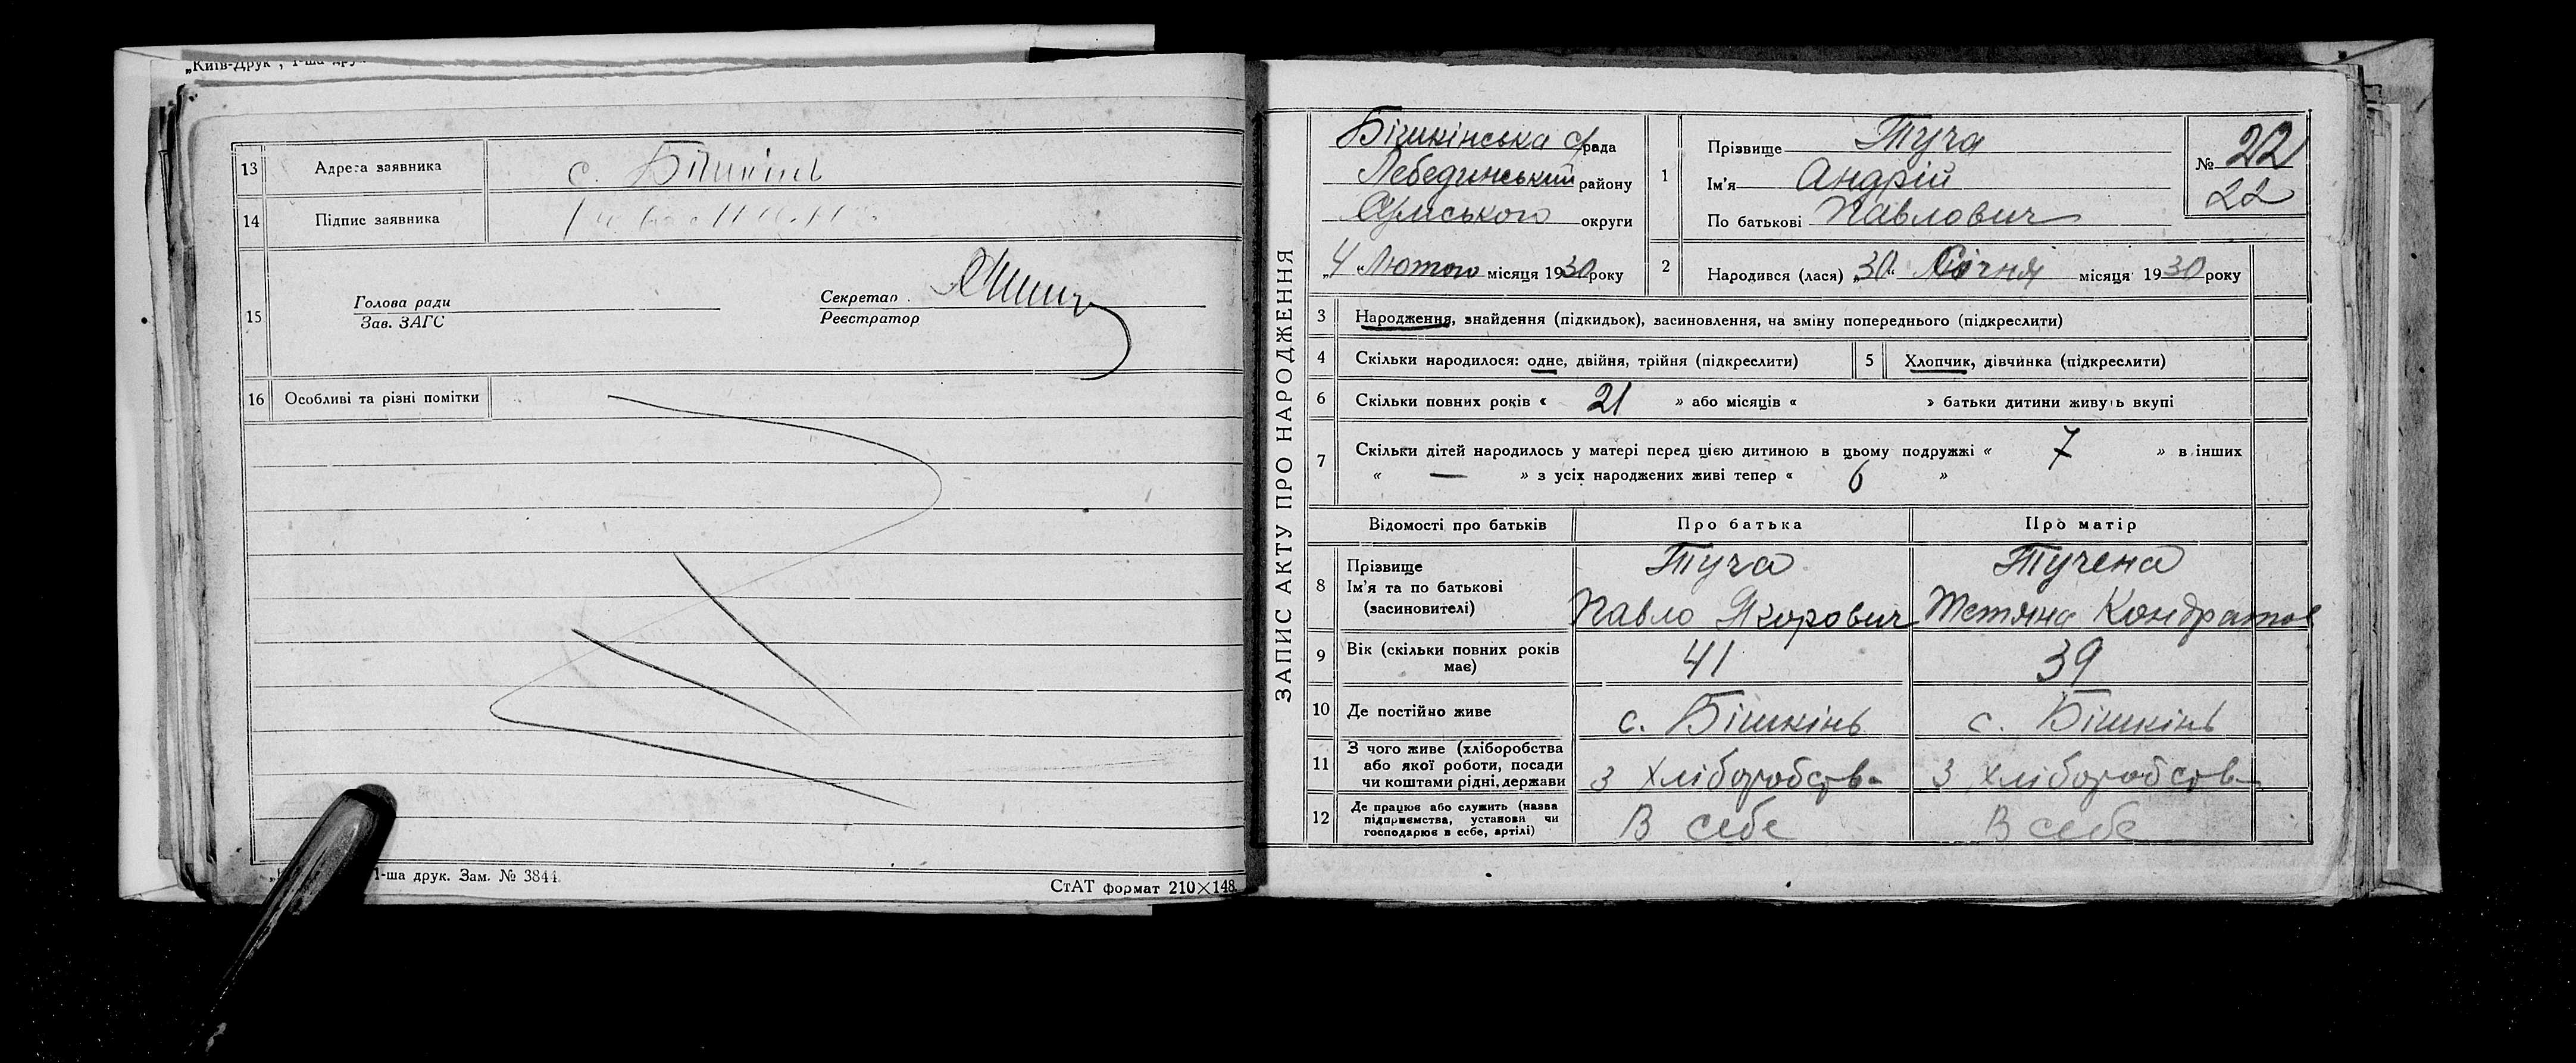 „Київ-Друк", 1-ша
13 Адреса заявника с. Бішкінь
14 Підпис заявника
15 Голова ради
Зав. ЗАГС
Секретар
Реєстратор
16 Особливі та різні помітки
1-ша друк. Зам. № 3844.
СтАТ формат 210×148.
ЗАПИС АКТУ ПРО НАРОДЖЕННЯ
Бішкінська с/рада
Лебединський району
Сумського округи
„4" Лютого місяця 1930 року
1 Прізвище Туча
Ім'я Андрій
По батькові Павлович
№ 22
22
2 Народився (лася) „30" Січня місяця 1930 року
3 Народження, знайдення (підкидьок), засиновлення, на зміну попереднього (підкреслити)
4 Скільки народилося: одне, двійня, трійня (підкреслити)
5 Хлопчик, дівчинка (підкреслити)
6 Скільки повних років « 21 » або місяців « » батьки дитини живуть вкупі
7 Скільки дітей народилось у матері перед цією дитиною в цьому подружжі « 7 » в інших
« — » з усіх народжених живі тепер « 6 »
Відомості про батьків Про батька Про матір
8 Прізвище Туча Тучена
Ім'я та по батькові
(засиновителі) Павло Тетяна Кондратов
9 Вік (скільки повних років має) 41 39
10 Де постійно живе с. Бішкінь с. Бішкінь
11 З чого живе (хліборобства
або якої роботи, посади
чи коштами рідні, держави з хліборобств з хліборобств
12 Де працює або служить (назва
підприємства, установи чи
господарює в себе, артілі) В себе В себе